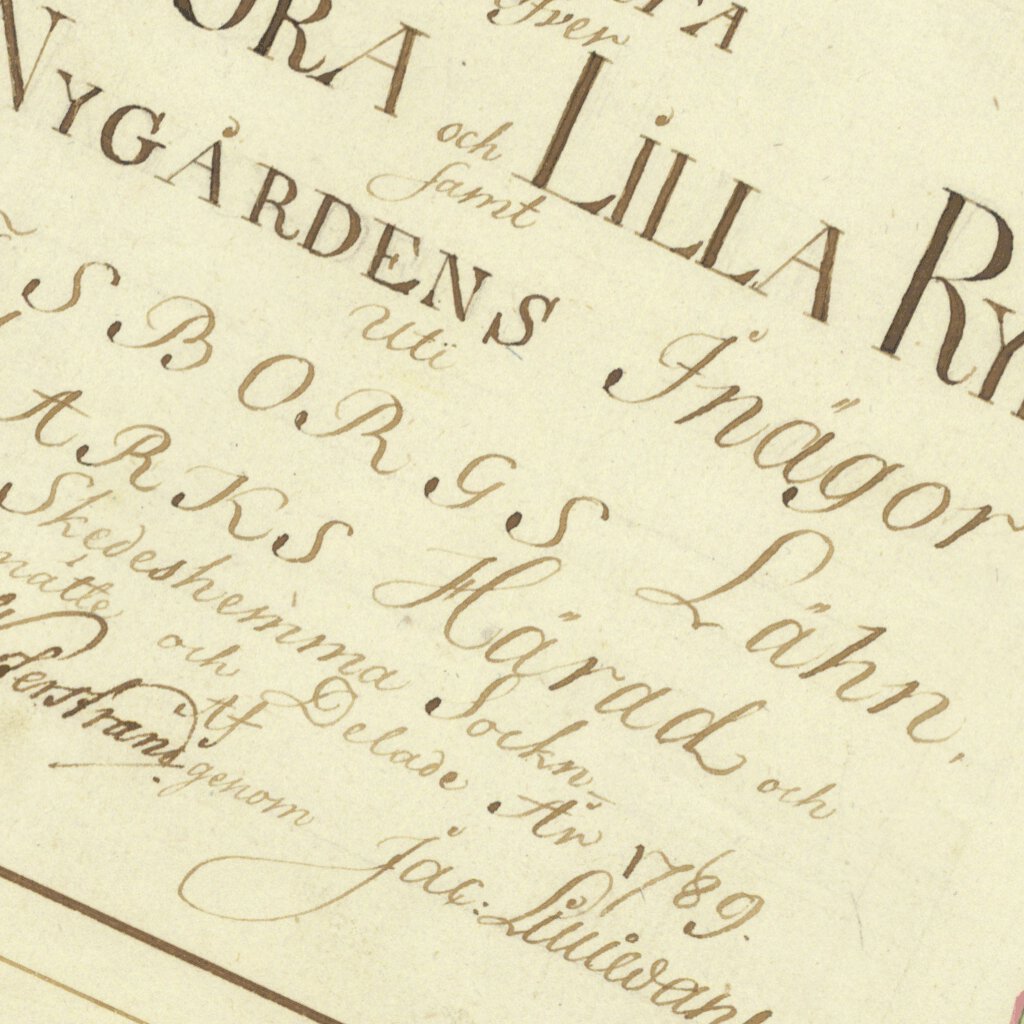 öfver
ORA och LILLA RY
NYGÅRDENS samt Inägor
uti
SBORGS Lähn,
ARKS Härad och
Skedeshemma Sockn
mätte och Delade År 1789.
af
derstrand. genom Jac: